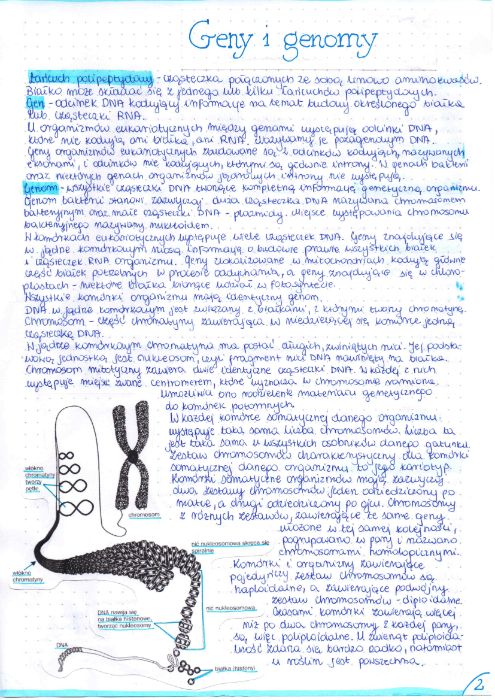 Geny i genomy
Łańcuch polipeptydowy - cząsteczka połączonych ze sobą liniowo aminokwasów.
Białko może składać się z jednego lub kilku łańcuchów polipeptydowych.
Gen - odcinek DNA kodujący informację na temat budowy określonego białka
lub cząsteczki RNA.
U organizmów eukariotycznych między genami występują odcinki DNA,
które nie kodują ani białka, ani RNA. Nazywamy je pozagenowym DNA.
Geny organizmów eukariotycznych zbudowane są z odcinków kodujących, nazywanych
eksonami, i odcinków nie kodujących, którymi są głównie introny. W genach bakterii
oraz niektórych genach organizmów jądrowych introny nie występują.
Genom - wszystkie cząsteczki DNA tworzące kompletną informację genetyczną organizmu.
Genom bakterii stanowi zazwyczaj duża cząsteczka DNA nazywana chromosomem
bakteryjnym oraz małe cząsteczki DNA - plazmidy. Miejsce występowania chromosomu
bakteryjnego nazywamy nukleoidem.
W komórkach eukariotycznych występuje wiele cząsteczek DNA. Geny znajdujące się
w jądrze komórkowym niosą informację o budowie prawie wszystkich białek
i cząsteczek RNA organizmu. Geny zlokalizowane w mitochondriach kodują główne
część białek potrzebnych w procesie oddychania, a geny znajdujące się w chloro-
plastach - niektóre białka biorące udział w fotosyntezie.
Wszystkie komórki organizmu mają identyczny genom.
DNA w jądrze komórkowym jest związany z białkami, z którymi tworzy chromatynę.
Chromosom - część chromatyny zawierająca w niedzielącej się komórce jedną
cząsteczkę DNA.
W jądrze komórkowym chromatyna ma postać długich, zwiniętych nici. Jej podsta-
wową jednostką jest nukleosom, czyli fragment nici DNA nawinięty na białka.
Chromosom mitotyczny zawiera dwie identyczne cząsteczki DNA. W każdej z nich
występuje miejsce zwane centromerem, które wyznacza w chromosomie ramiona.
Umożliwia ono rozdzielenie materiału genetycznego
do komórek potomnych.
W każdej komórce somatycznej danego organizmu
występuje taka sama liczba chromosomów. Liczba ta
jest taka sama u wszystkich osobników danego gatunku.
Zestaw chromosomów charakterystyczny dla komórki
somatycznej danego organizmu to jego kariotyp.
Komórki somatyczne organizmów mają zazwyczaj
dwa zestawy chromosomów jeden odziedziczony po
matce, a drugi odziedziczony po ojcu. Chromosomy
z różnych zestawów, zawierające te same geny
ułożone w tej samej kolejności,
pogrupowano w pary i nazwano
chromosomami homologicznymi.
Komórki i organizmy zawierające
pojedynczy zestaw chromosomów są
haploidalne, a zawierające podwójny
zestaw chromosomów - diploidalne.
Czasami komórki zawierają więcej
niż po dwa chromosomy z każdej pary,
są, więc poliploidalne. U zwierząt poliploidal-
ność zdarza się bardzo rzadko, natomiast
u roślin jest powszechna.
włókno
chromatyny
tworzy
pętle
chromosom
włókno
chromatyny
nić nukleosomowa skręca się
spiralnie
nić nukleosomowa
DNA nawija się
na białka histonowe,
tworząc nukleosomy
DNA
białka (histony)
2